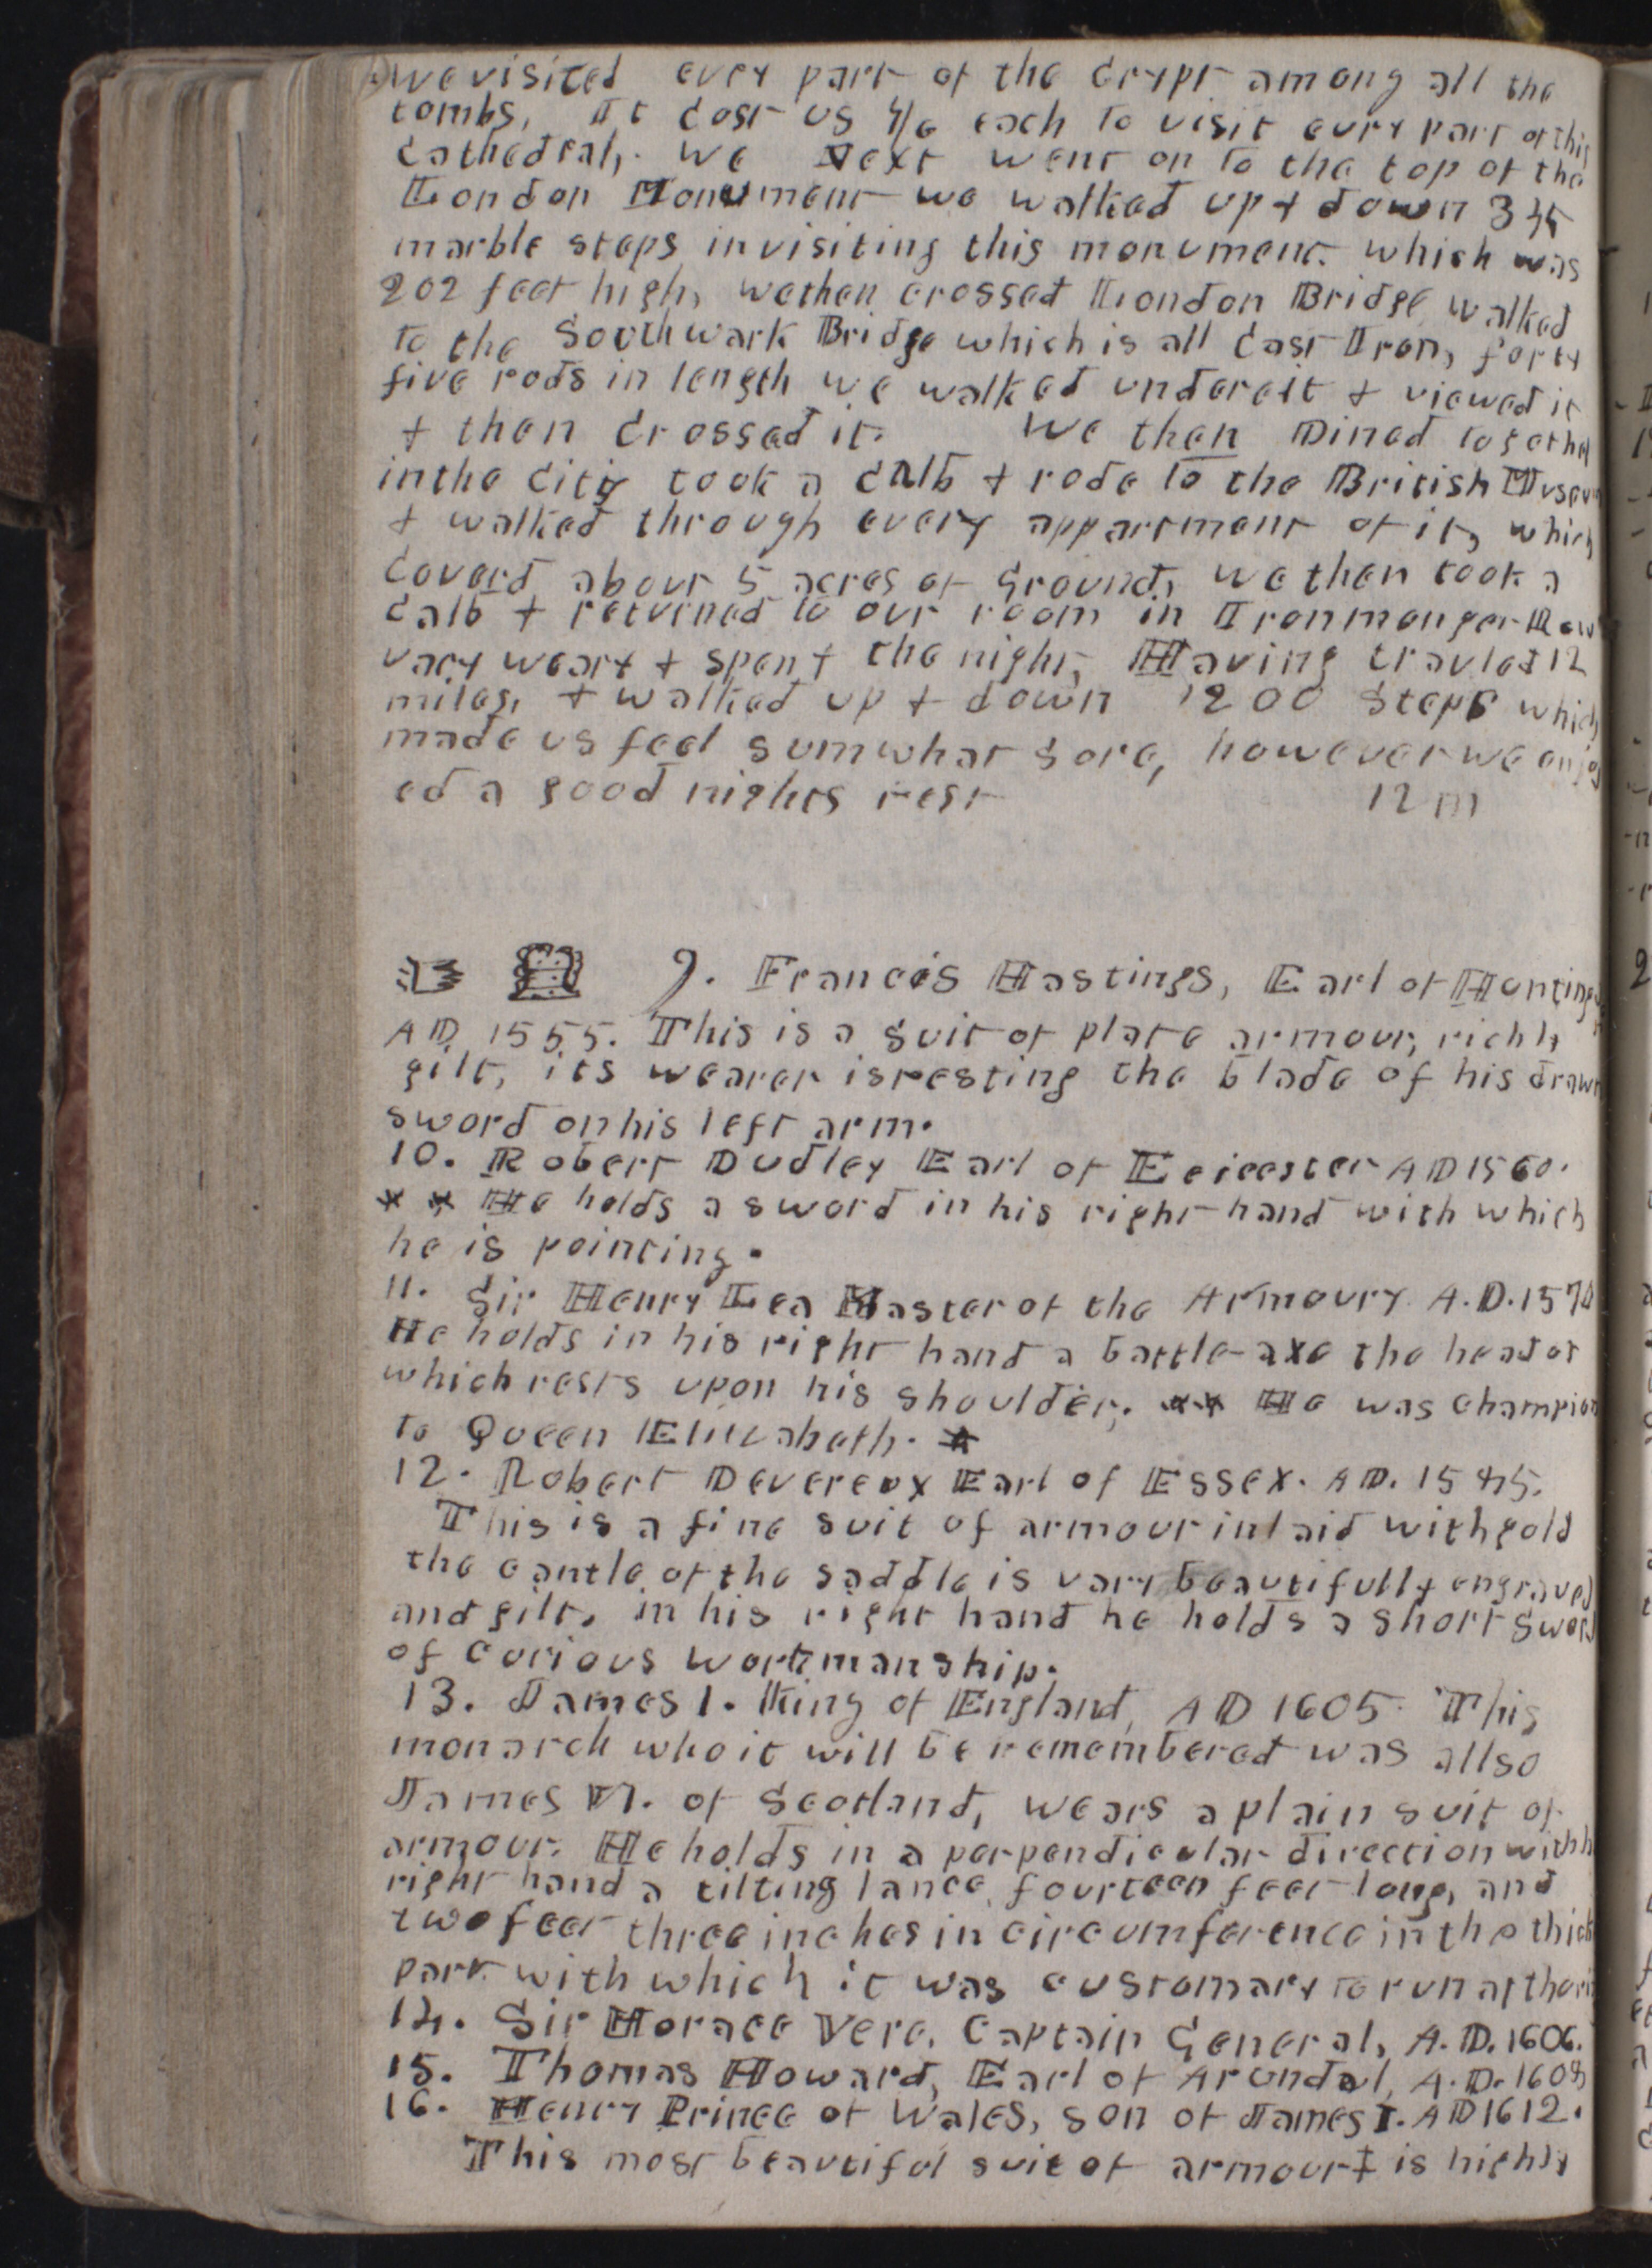 we visited evry part of the Crypt among all the
tombs, It Cost us 4/6 each to visit evry part of this
Cathedral, We Next went on to the top of the
London Monument we walked up & down 345
marble steps in visiting this monument. which was
202 feet high, we then crossed London Bridge walked
to the Southwark Bridge which is all Cast Iron, forty
five rods in length we walked undereit & viewed it
& then Crossed it. We then Dined together
in the City took a Calb & rode to the British Museum
& walked through every appartment of it, which
Coverd about 5 acres of Ground, we then took a
Calb & returned to our room in Ironmonger Row
vary weary & spent the night, Having travled 12
miles, & walked up & down 1200 Steps which
made us feel sumwhat Sore, however we enjoy
ed a good nights rest 12 m
9. Francis Hastings, Earl of Hunting
AD. 1555. This is a Suit of plate armour, richly
gilt, its wearer is resting the blade of his drawn
sword on his left arm.
10. Robert Dudley Earl of Leicester AD 1560.
* * He holds a sword in his right hand with which
he is pointing.
11. Sir Henry Lea Master of the Armoury A.D. 1570
He holds in his right hand a battle-axe the head of
which rests upon his shoulder. ** He was Champion
to Queen Elizabeth. *
12. Robert Devereux Earl of Essex. AD. 1545.
This is a fine suit of armour inlaid with gold
the cantle of the saddle is vary beautifully engraved
and gilt. in his right hand he holds a short Sword
of curious workmanship.
13. James 1. King of England, AD 1605. This
monarch who it will be remembered was allso
James VI. of Scotland, wears a plain suit of
armour. He holds in a perpendicular direction with h
right hand a tilting lance fourteen feet long, and
two feet three inches in circumference in the thick
part with which it was customary to run at the
14. Sir Horace Vere. Captain General, A.D. 1606.
15. Thomas Howard, Earl of Arundel, A.D. 1608
16. Henry Prince of Wales, son of James I. AD 1612.
This most beautiful suit of armour is highly